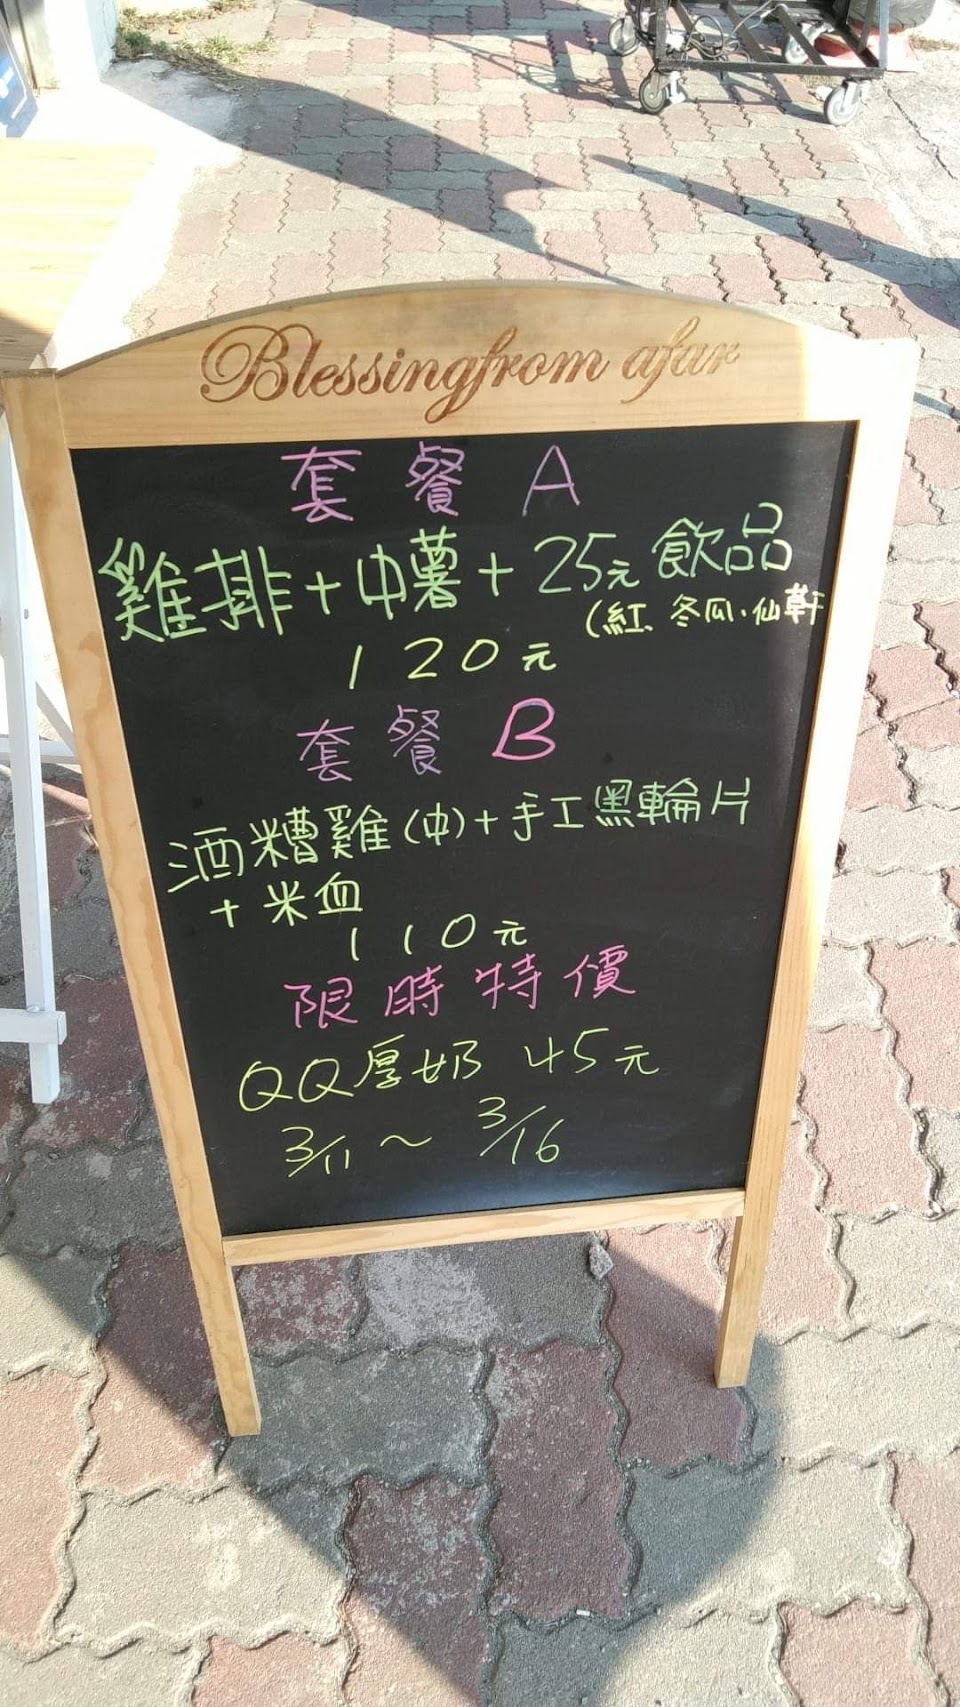 Blessing from afar
套餐A
雞排+中薯+25元飲品
(紅、冬瓜、仙干
120元
套餐B
酒糟雞(中)+手工黑輪片
+米血
110元
限時特價
QQ厚奶 45元
3/11～3/16